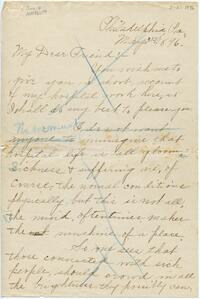 Philadelphia, Pa,
My Dear Friend:
You wish me to
give you a short account
of my hospital work here, so
I shall do my best to please you.
I do not want
anyone to imagine that
hospital life is all gloom.
Sickness & suffering are, of
course, the normal conditions
physically, but this is not all,
the mind oftentimes makes
the sunshine of a place.
So one sees that
those connected with sick
people, should crowd in all
the brightness they possibly can,